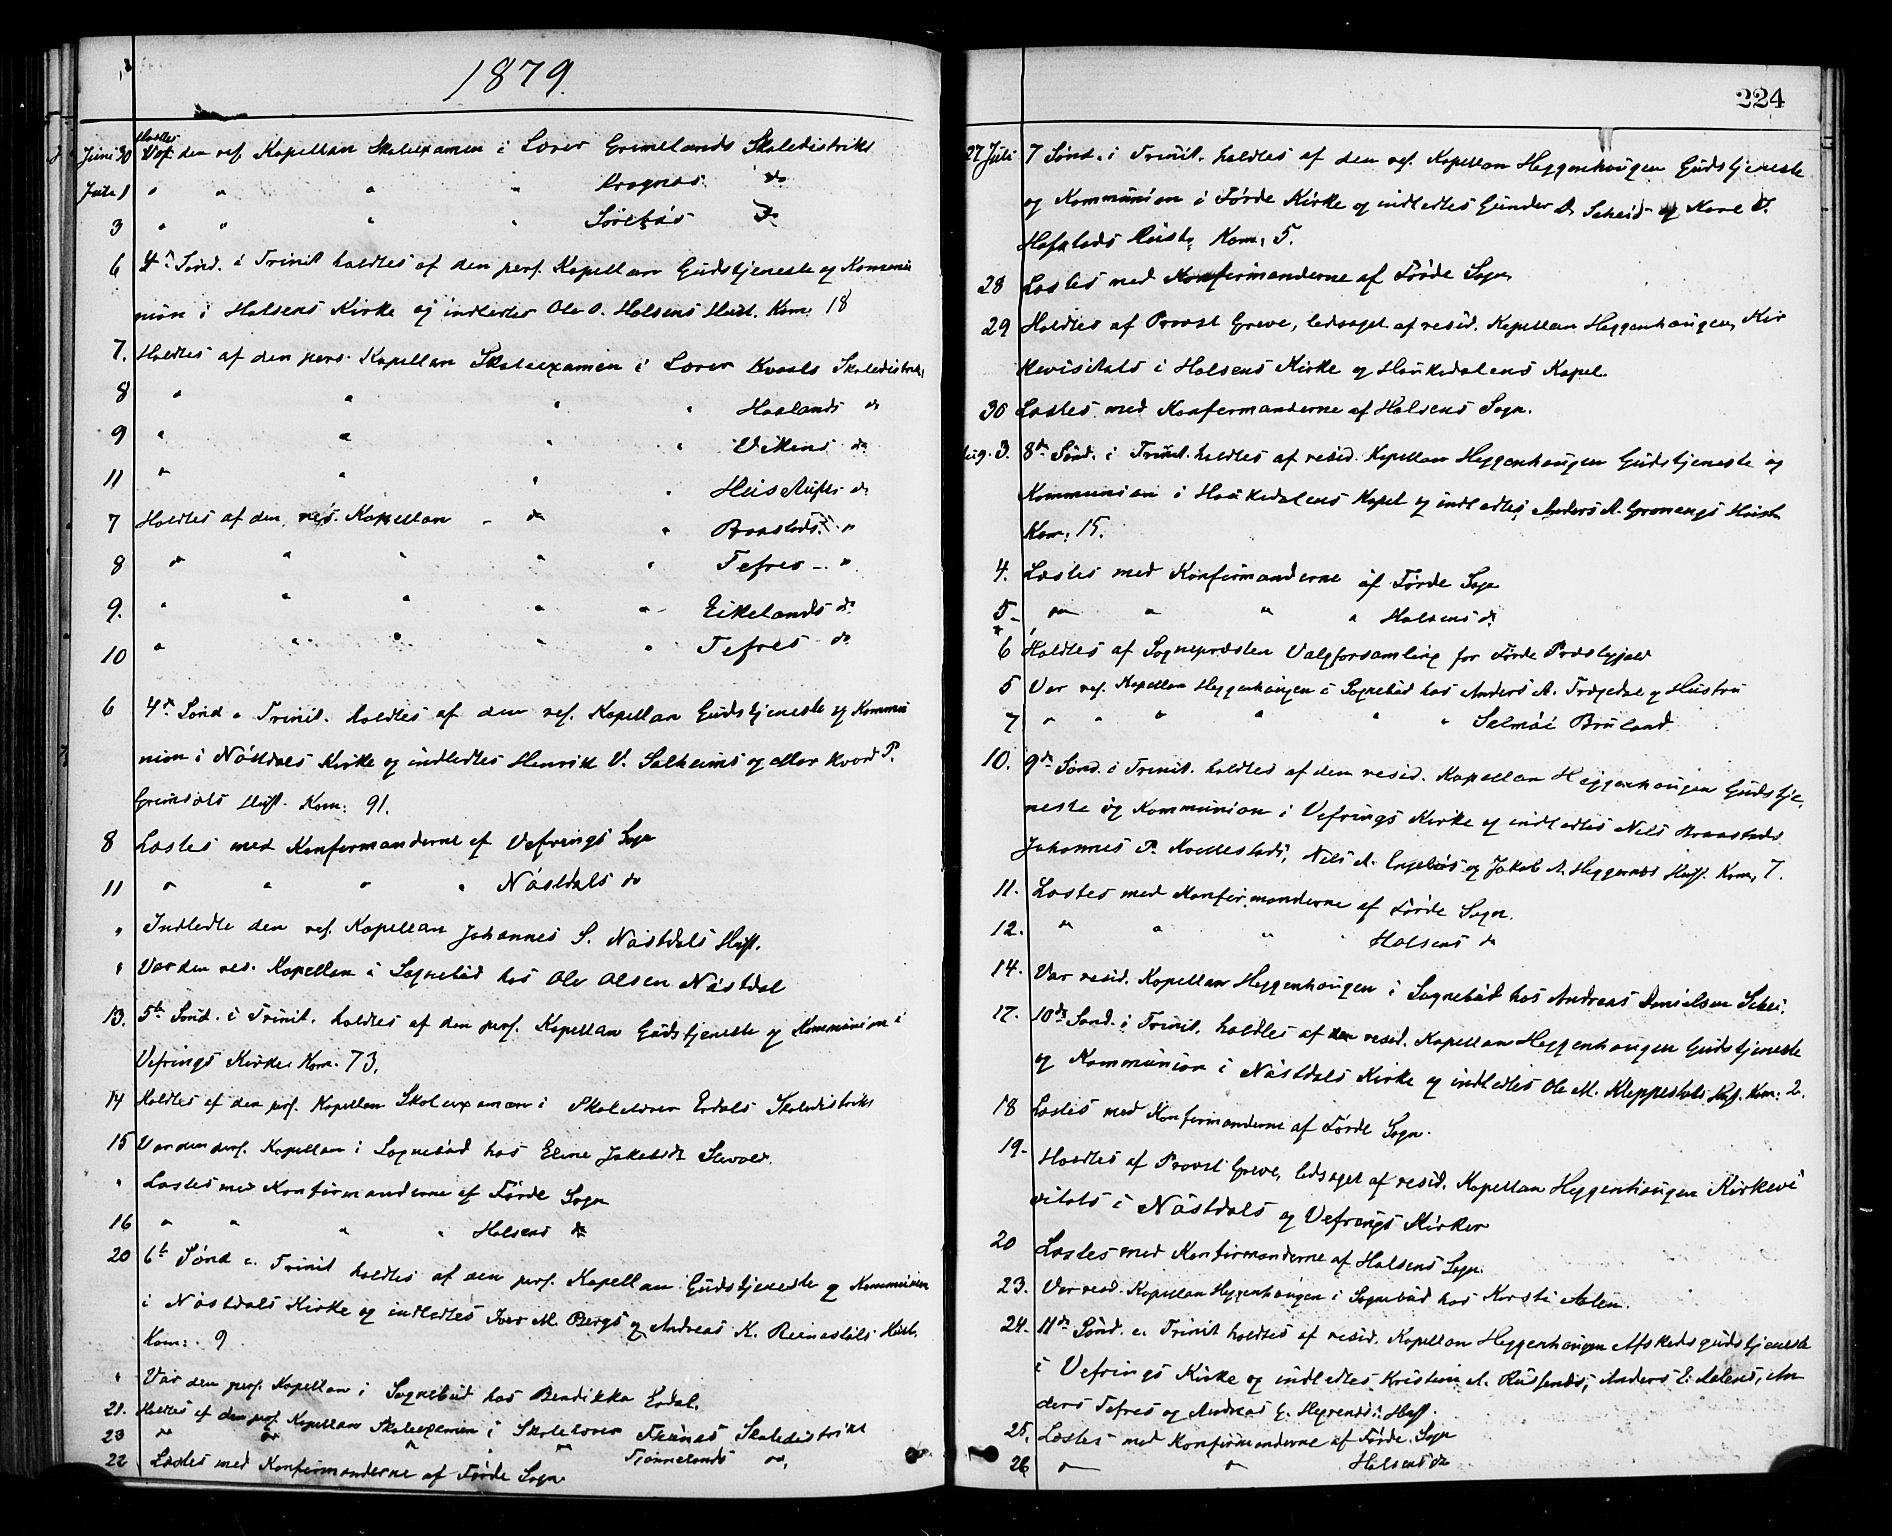 1879.
Juni 30 Holdtes af den res. Kapellan Skoleexamen i Lærer Grimelands Skoledistrikt
Juli 1 " " " " Krognæs do
3 " " " " Sörebös do
6 4de Sönd. i Trinit holdtes af den pers. Kapellan Gudstjeneste og Kommu
nion i Holsens Kirke og indledtes Ole O. Holsens Hust. Kom. 18
7. Holdtes af den pers. Kapellan Skoleexamen i Lærer Kvaals Skoledistrikt
8 " " " " Haslands do
9 " " " " Vikens do
11 " " " "
7 Holdtes af den res. Kapellan - do "
8 " " " " Tefres - "
9. " " " " " Eikelands do
10 " " " " " Tefres do
6 4de Sönd e Trinit. holdtes af den res. Kapellan Gudstjeneste og Kommu
nion i Nöstdals Kirke og indledtes Henrik V. Salheims og P.
Grimdals Hust. Kom: 91.
8 Læstes med Konfirmanderne af Vefrings Sogn
11 " " " " Nöstdals do
" Indledte den res. Kapellan Johannes S. Nöstdals Hust.
" Var den res. Kapellan i Sognebud hos Ole Olsen Nöstdal
13. 5te Sönd. i Trinit. holdtes af den pers. Kapellan Gudstjeneste og Kommunion i
Vefrings Kirke. Kom. 73.
14 Holdtes af den pers. Kapellan Skoleexamen i Skolelærer Erdals Skoledistrikt
15 Var den pers. Kapellan i Sognebud hos Eline Jakobsdt
" Læstes med Konfirmanderne af Förde Sogn
16 " " " " Holsens do
20 6te Sönd e. Trinit holdtes af den pers. Kapellan Gudstjeneste og Kommunion
i Nöstdals Kirke og indledtes Iver M. Bergs og Andreas K. Reinestöls Hust.
Kom: 9
" Var den pers. Kapellan i Sognebud hos Bendikka Erdal.
21. Holdtes af den pers. Kapellan Skoleexamen i Skolelærer Skoledistrikt
23 " " " " do,
22 Læstes med Konfirmanderne af Förde Sogn
224
27 Juli 7 Sönd. i Trinit. holdtes af den res. Kapellan Heggenhougen Gudstjeneste
og Kommunion i Förde Kirke og indledtes Gunder D. Scheid og
Hafstads Hust. Kom: 5.
28 Læstes med Konfirmanderne af Förde Sogn
29 Holdtes af Provst Greve, ledsaget af resid. Kapellan Heggenhougen, Kir
kevisitats i Holsens Kirke og Haukedalens Kapel.
30 Læstes med Konfirmanderne af Holsens Sogn.
Aug. 3. 8de Sönd. i Trinit. holdtes af resid. Kapellan Heggenhougen Gudstjeneste og
Kommunion i Haukedalens Kapel og indledtes Anders A. Grönengs Hust
Kom: 15.
4. Læstes med Konfirmanderne af Förde Sogn
5 - " " " " Holsens do.
6 Holdtes af Sognepræsten Valgforsamling for Förde Præstegjeld
5 Var res. Kapellan Heggenhougen i Sognebud hos Anders A. Trægedal og Hustru
7 " " " " " " Bruland
10. 9de Sönd. i Trinit. holdtes af den resid. Kapellan Heggenhougen Gudstje,
neste og Kommunion i Vefrings Kirke og indledtes Nils
Johannes P. Nils A. Engebös og Jakob A. Heggernæs Hust. Kom: 7.
11. Læstes med Konfirmanderne af Förde Sogn.
12. " " " " Holsens do
14. Var resid. Kapellan Heggenhougen i Sognebud hos Andreas Danielsen Schei.
17. 10de Sönd. i Trinit. holdtes af den resid. Kapellan Heggenhougen Gudstjeneste
og Kommunion i Nöstdals Kirke og indledtes Ole M. Kleppestöls Hust. Kom: 2.
18 Læstes med Konfirmanderne af Förde Sogn.
19- Holdtes af Provst Greve, ledsaget af resid. Kapellan Heggenhougen Kirkevi
sitats i Nöstdals og Vefrings Kirker
20 Læstes med Konfirmanderne af Holsens Sogn.
23. Var resid. Kapellan Heggenhougen i Sognebud hos Kirsti Aalen.
24. 11te Sönd. e. Trinit holdtes af resid. Kapellan Heggenhougen Afskedsgudstjeneste
i Vefrings Kirke og indledtes Kristian A. Anders E. Aalens, An
ders Tefres og Andreas G. Hust.
25. Læstes med Konfirmanderne af Förde Sogn
26 " " Holsens do